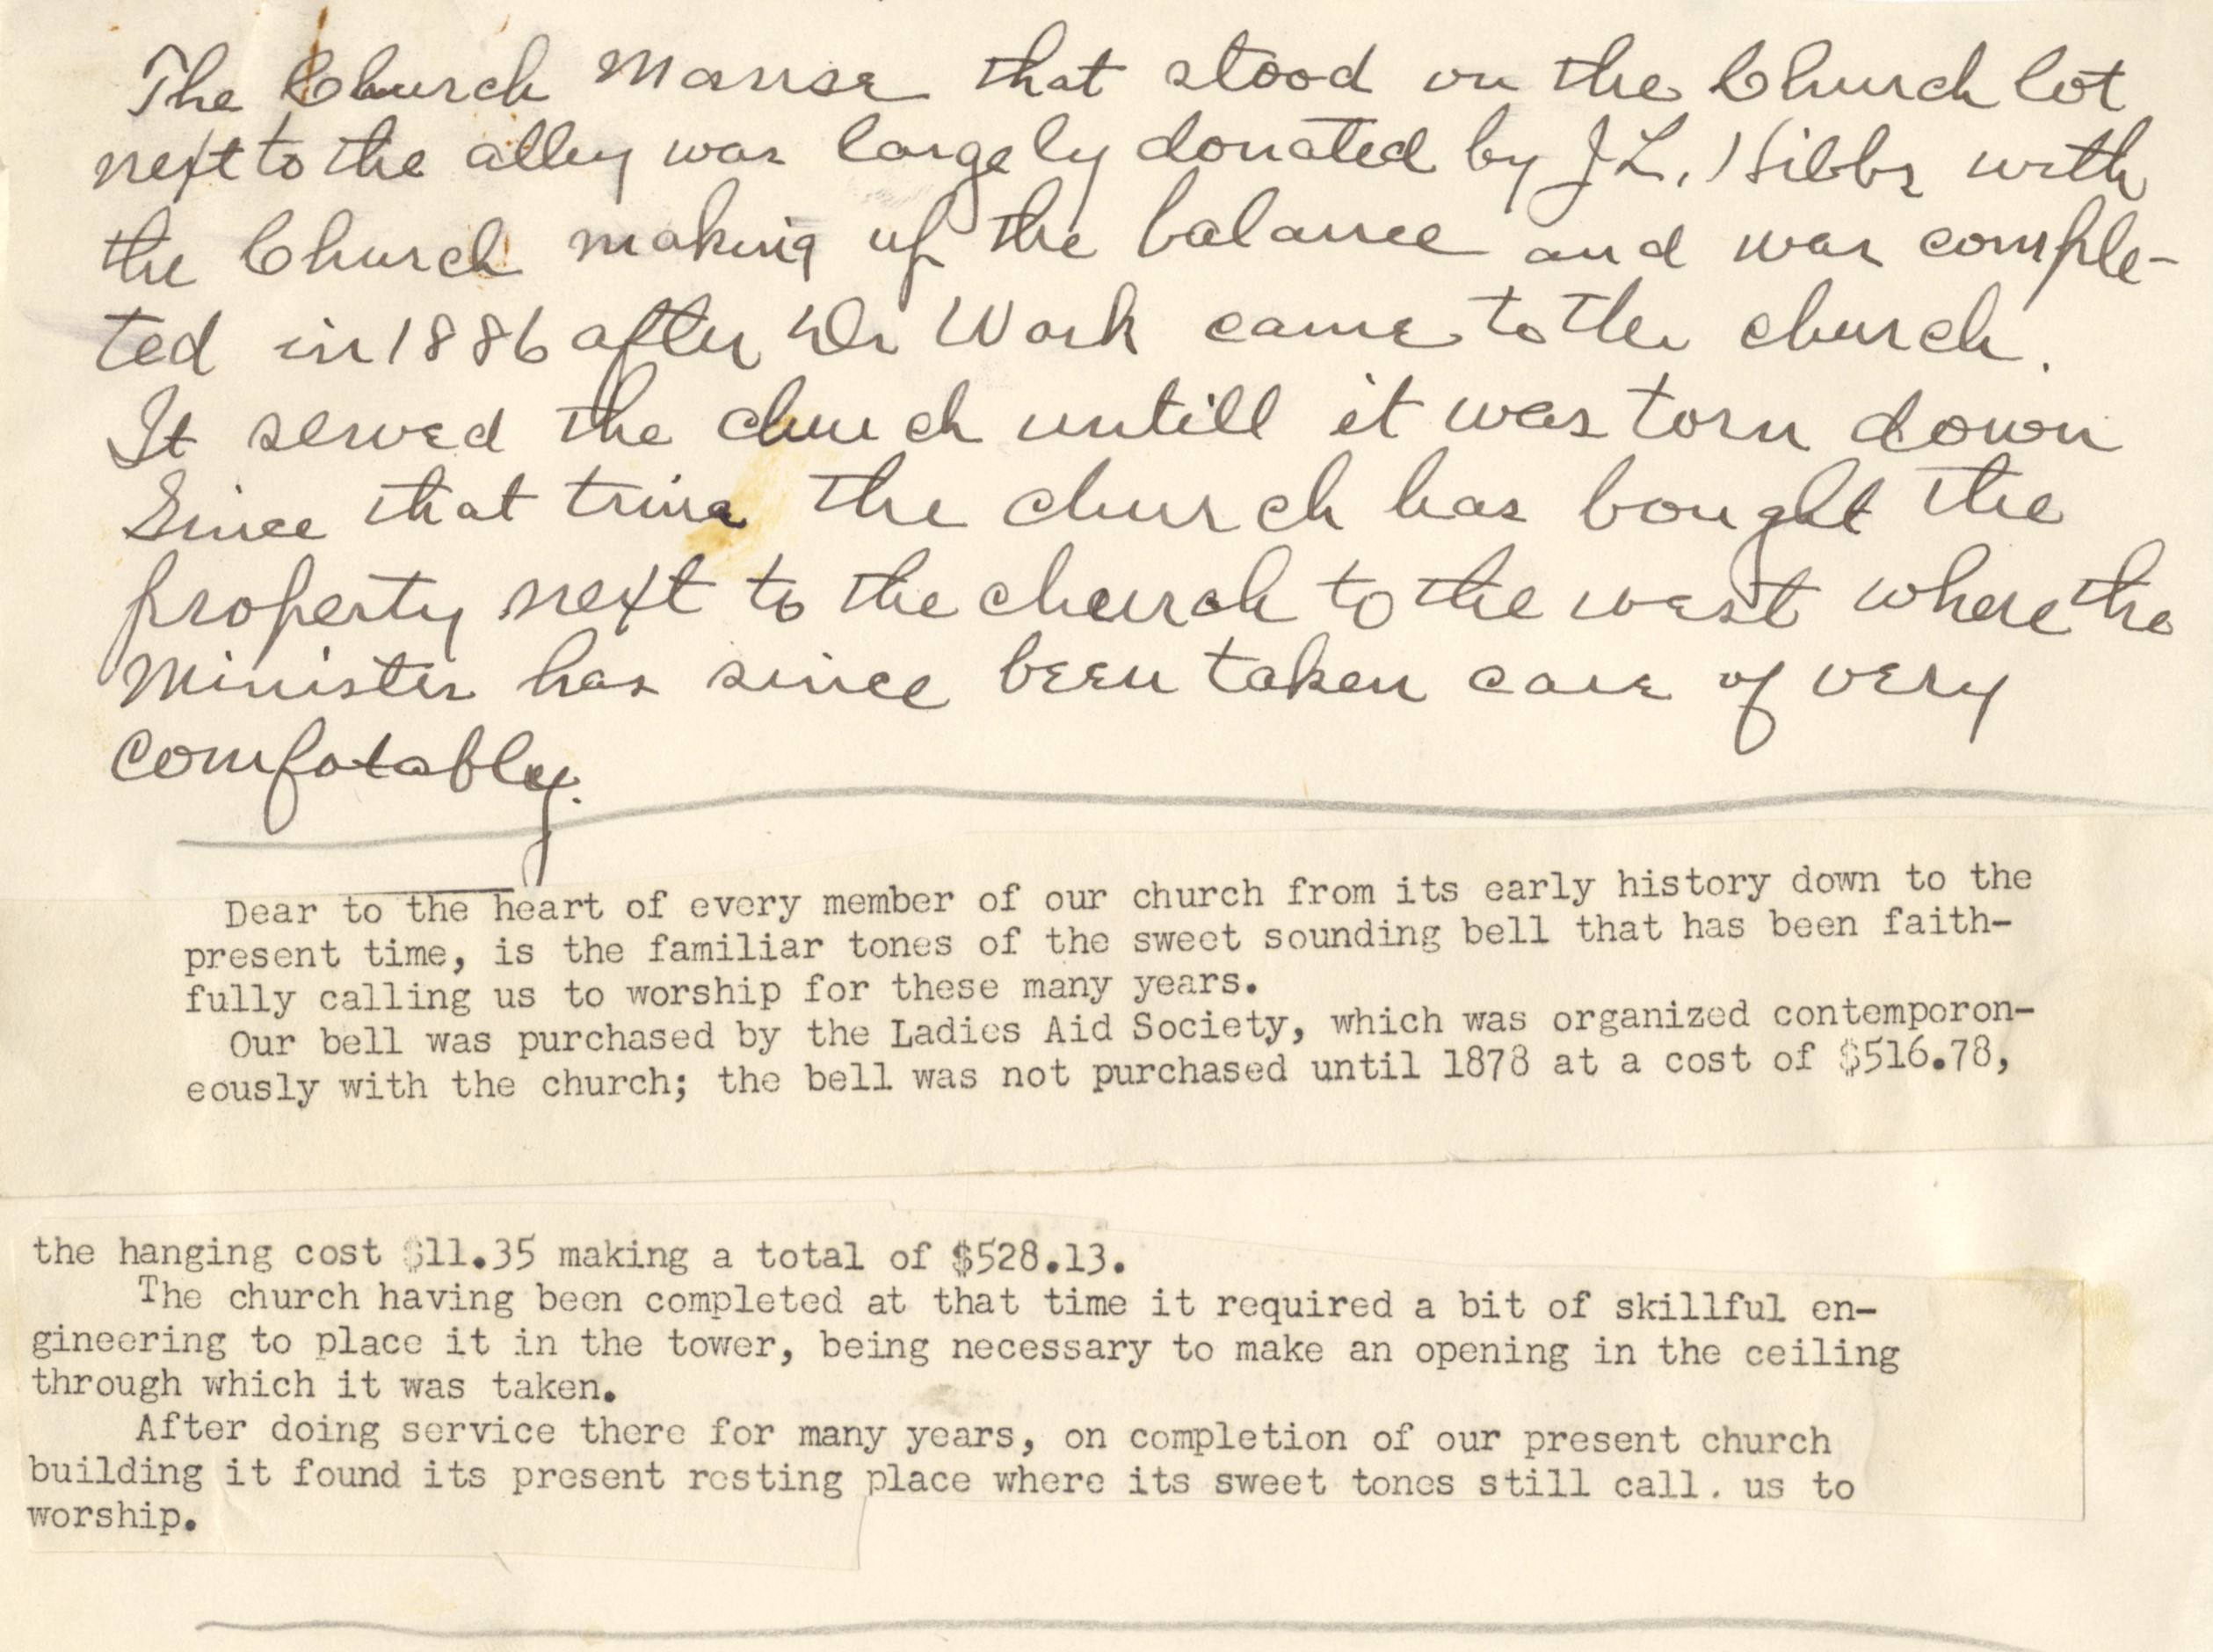 The Church Manse that stood on the Church lot
next to the alley was largely donated by J L. Hibbs with
the Church making up the balance and was comple-
ted in 1886 after Dr Work came to the church.
It served the church untill it was torn down
Since that time the church has bought the
property next to the church to the west where the
Minister has since been taken care of very
comfotably.
Dear to the heart of every member of our church from its early history down to the
present time, is the familiar tones of the sweet sounding bell that has been faith-
fully calling us to worship for these many years.
Our bell was purchased by the Ladies Aid Society, which was organized contemporon-
eously with the church; the bell was not purchased until 1878 at a cost of $516.78,
the hanging cost $11.35 making a total of $528.13.
The church having been completed at that time it required a bit of skillful en-
gineering to place it in the tower, being necessary to make an opening in the ceiling
through which it was taken.
After doing service there for many years, on completion of our present church
building it found its present resting place where its sweet tones still call. us to
worship.